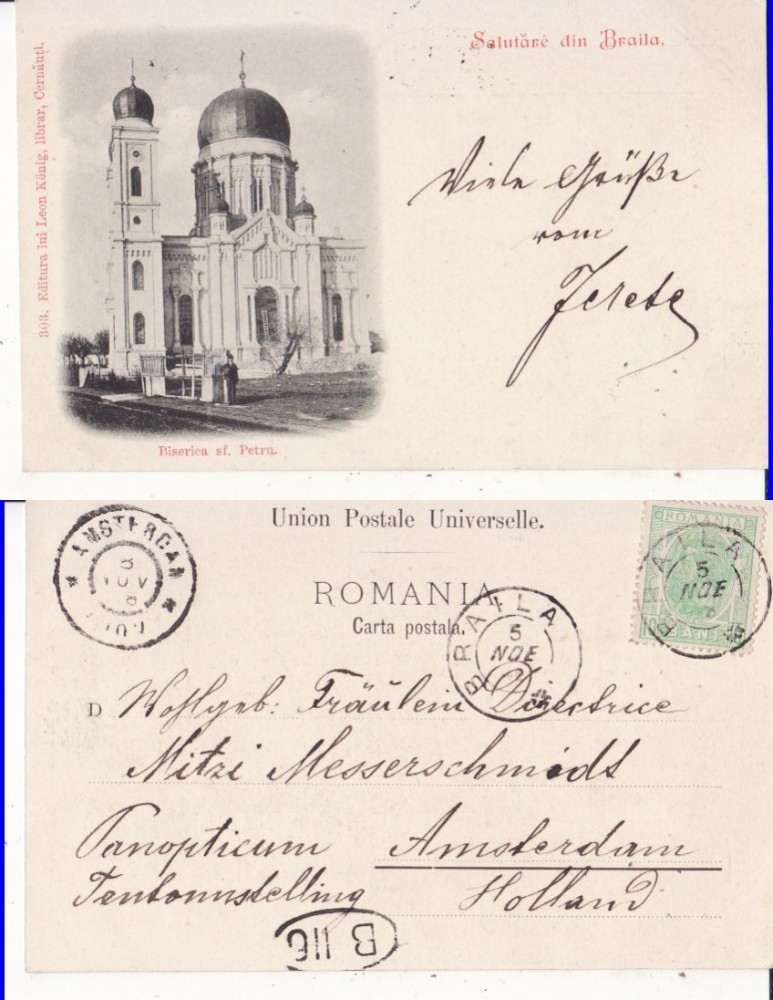 Salutări din Braila.
303. Editura lui Leon König, librar, Cernăuți.
Viele Grüße
vom
Biserica sf. Petru.
Union Postale Universelle.
ROMANIA
Carta postala.
AMSTERDAM
8
NOV
8
ROMANIA
10 BANI
BRAILA
5
NOE
BRAILA
5
NOE
D Wohlgeb: Fräulein Directrice
Mitzi Messerschmidt
Panopticum Amsterdam
Tentoonstelling Holland
B 116